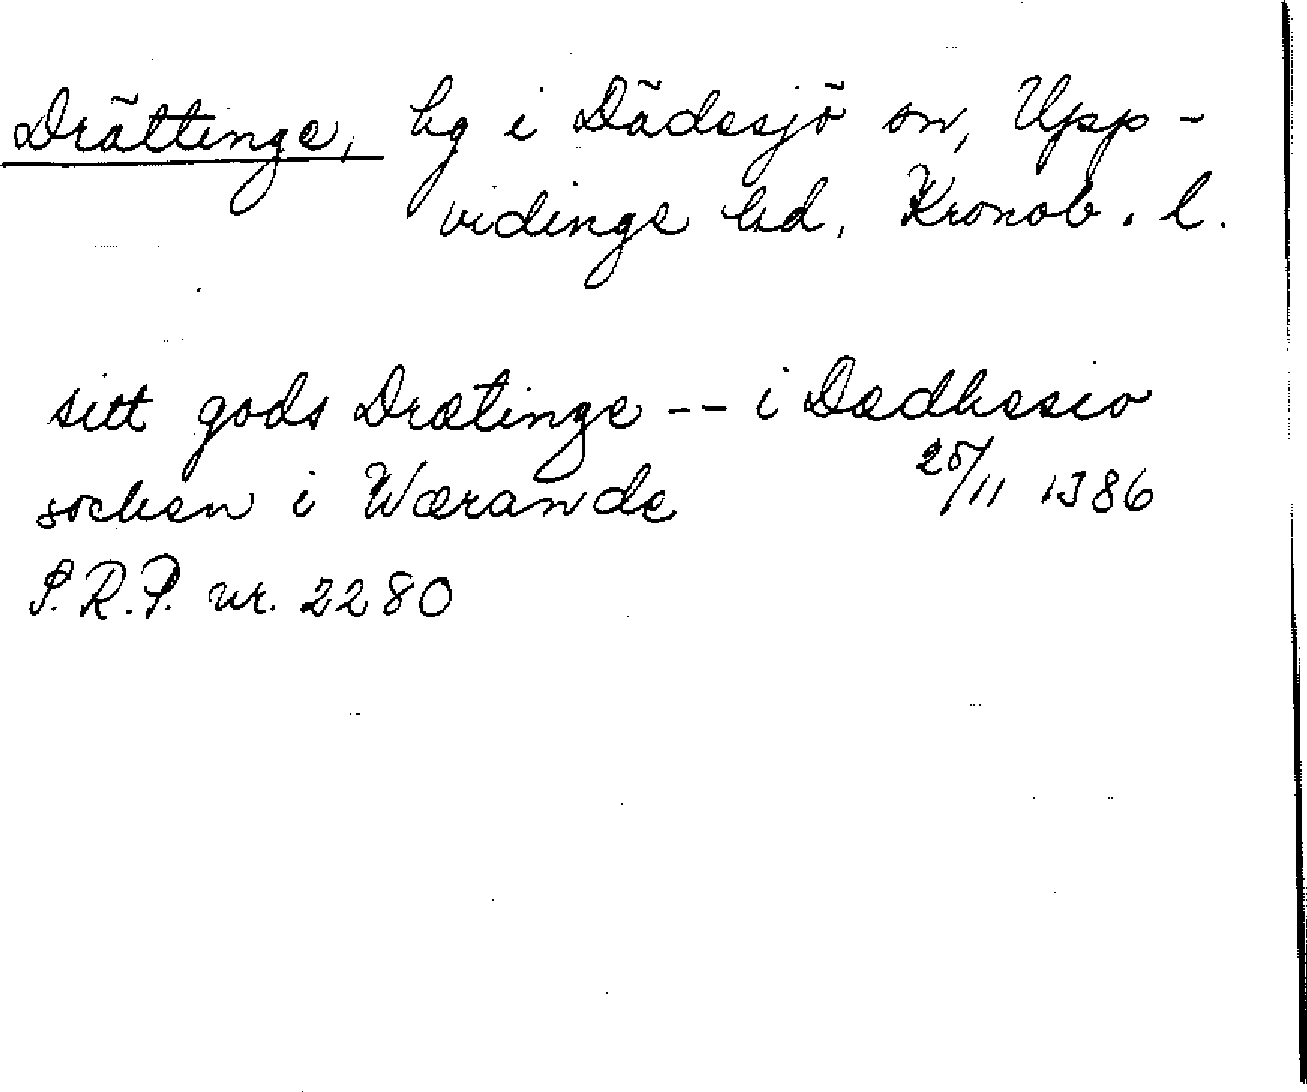 Drättinge, hg i Dädesjö sn, Upp-
vidinge hd, Kronob. l.
sitt gods Drætinge -- i Dædhesio
sochen i Wærende 25/11 1386
S.R.P. nr. 2280